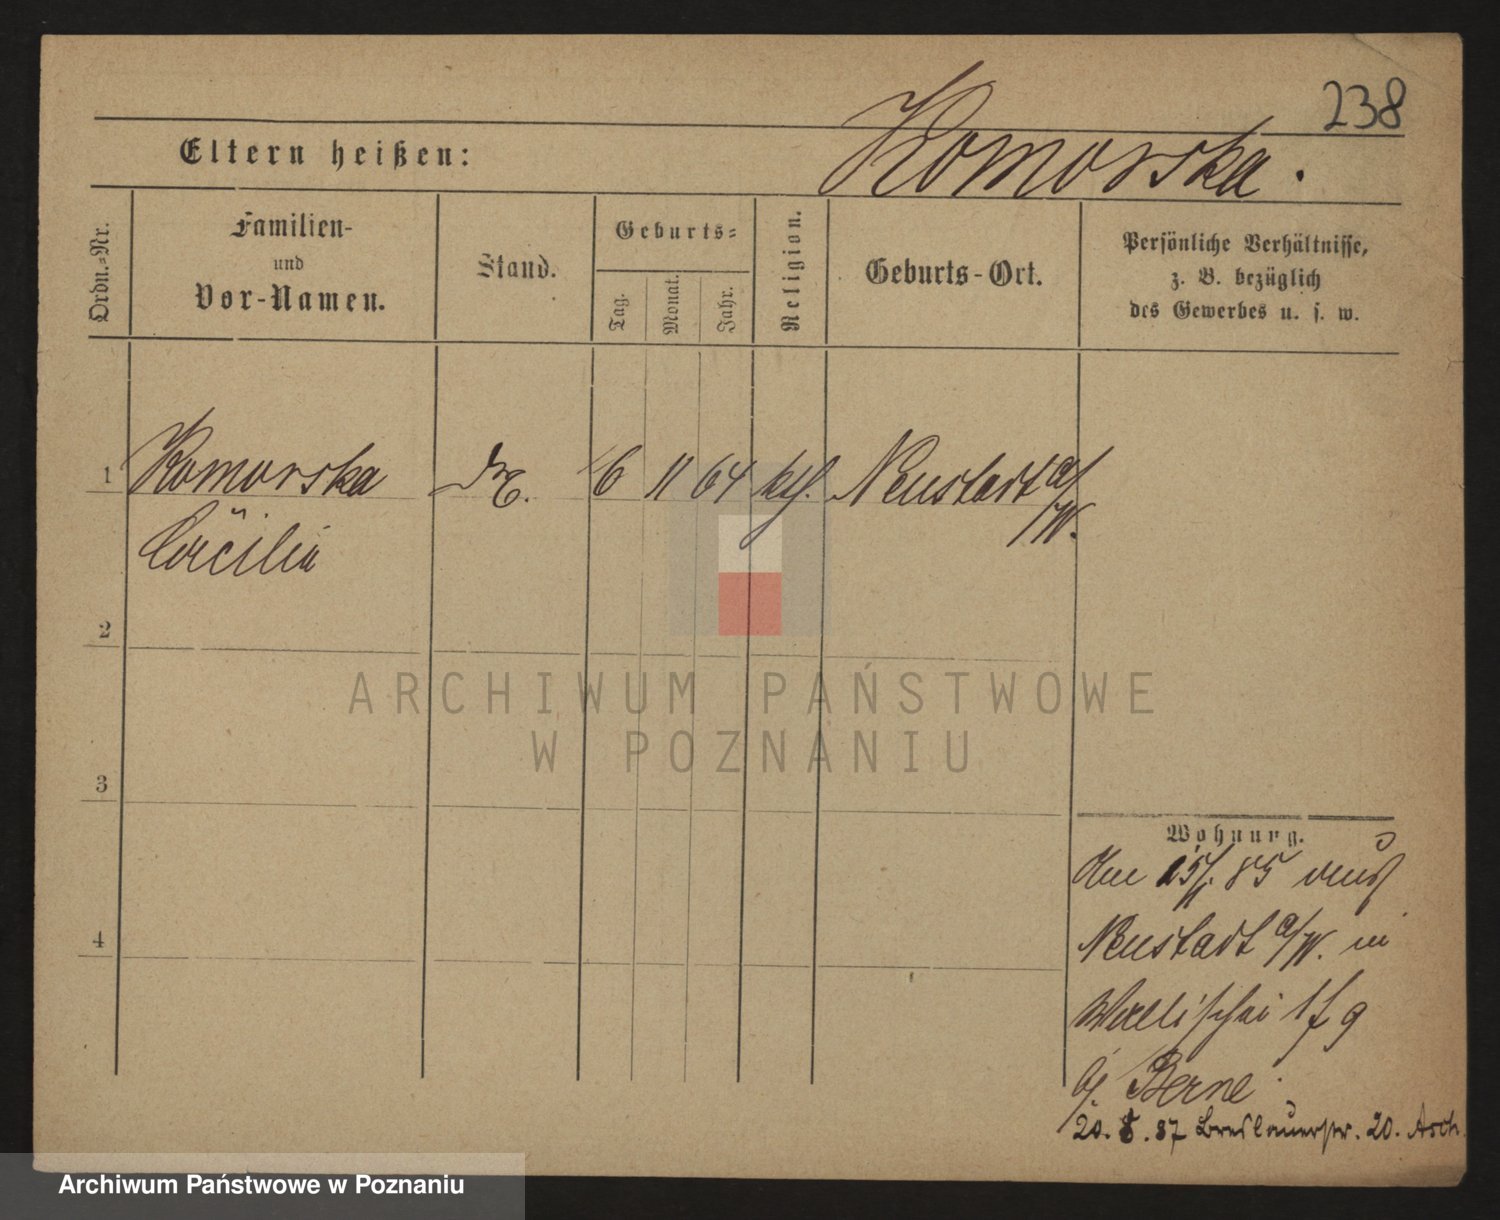 238
Komorska.
Eltern heißen:
Ordn.=Nr.
Familien-
und
Vor-Namen.
Stand.
Geburts=
Tag.
Monat.
Jahr.
Religion.
Geburts-Ort.
Persönliche Verhältnisse,
z. B. bezüglich
des Gewerbes u. s. w.
1 Komorska 6 11 64 kth. Neustadt a/
W.
Cäcilia
2
3
4
Wohnung.
Am 15/. 85 aus
Neustadt a/W. in
Wallischei 9
bj. Berne
20. 8. 87 Breslauerstr. 20.
ARCHIWUM PAŃSTWOWE
W POZNANIU
Archiwum Państwowe w Poznaniu